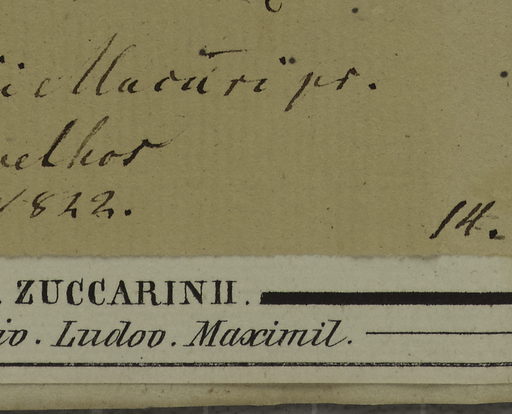 i Macūrï pr.
velhos
1822.
14.
. ZUCCARINII.
io. Ludov. Maximil.